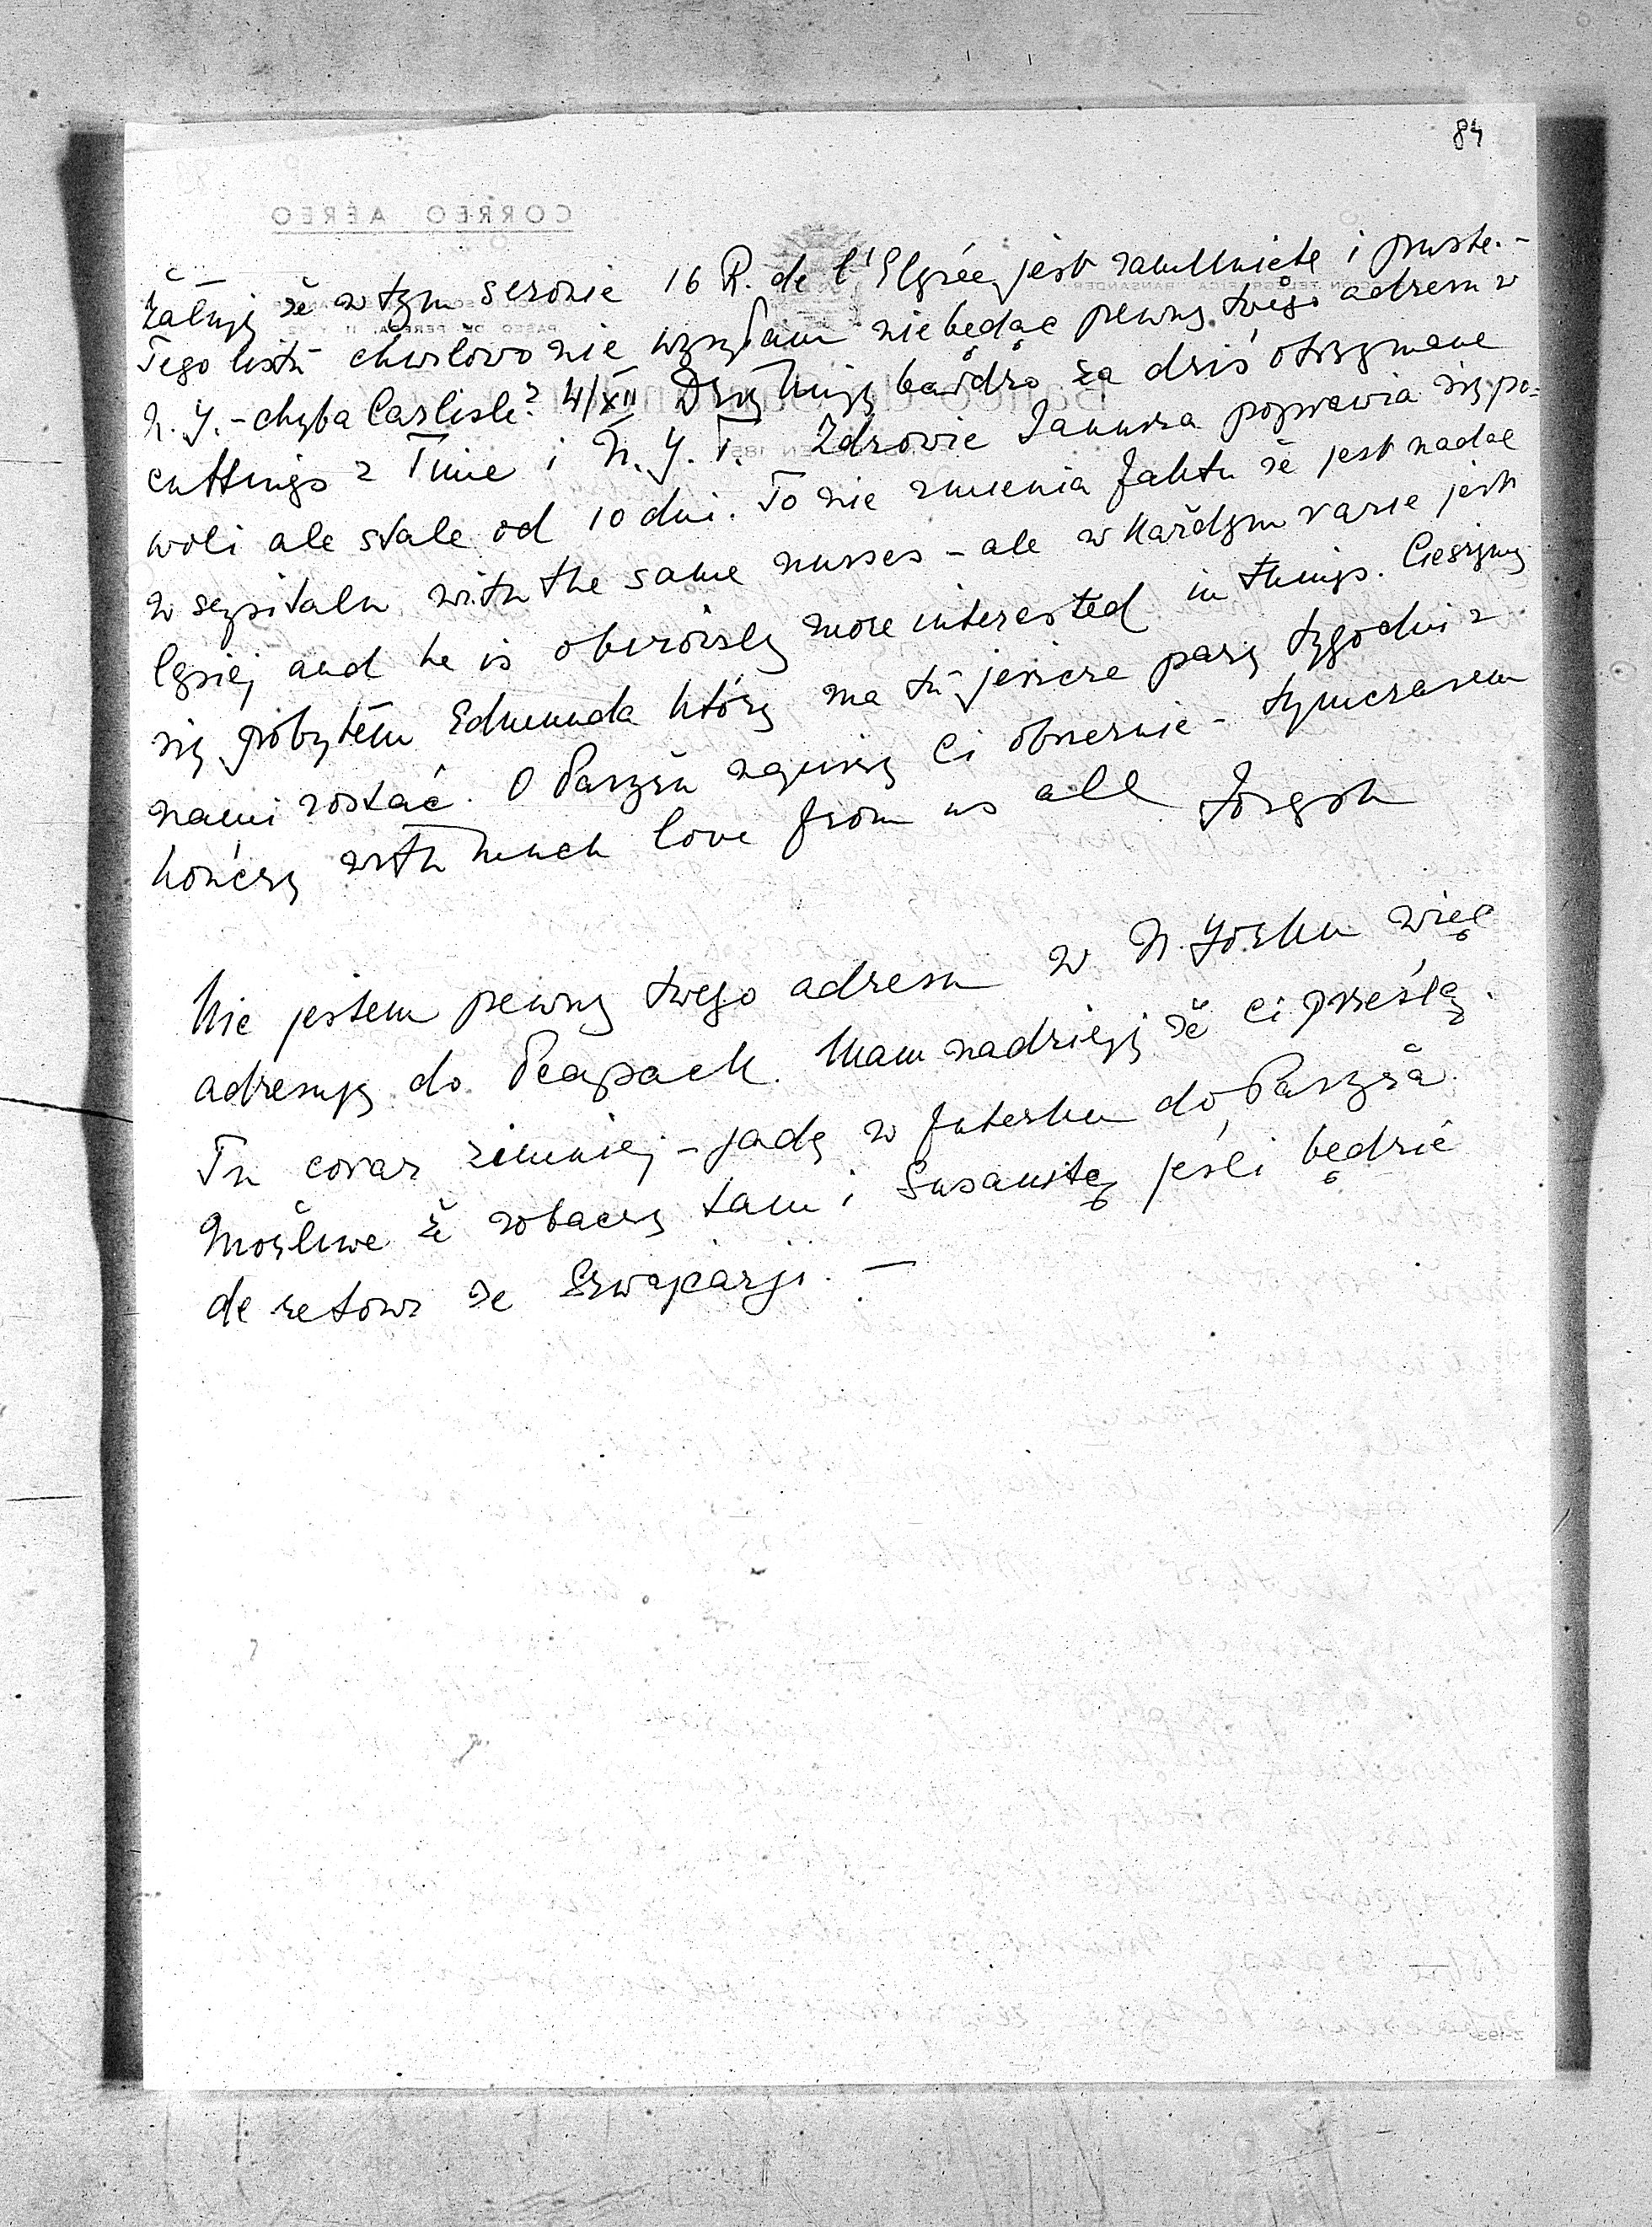 84
CORREO AÉREO
Żałuję że w tym sezonie 16 R. de l'Elysée jest zamknięte i puste.-
Tego listu chwilowo nie wysyłam nie będąc pewny twego adresu w
N.Y. - chyba Carlisle? 4/XII Dziękuję bardzo za dziś otrzymane
cuttings z Time i N.Y.T. Zdrowie Janusza poprawia się po-
woli ale stale od 10 dni. To nie zmienia faktu że jest nadal
w szpitalu with the same nurses - ale w każdym razie jest
lepiej and he is obviously more interested in things. Cieszymy
się pobytem Edmunda który ma tu jeszcze parę tygodni z
nami zostać. O Paryżu napiszę Ci obszernie - tymczasem
kończę with much love from us all Joseph
Nie jestem pewny twego adresu w N. Yorku więc
adresuję do Peapack. Mam nadzieję że Ci prześlą.
Tu coraz zimniej - jadę w futerku do Paryża.
Możliwe że zobaczę tam i Zusanstę jeśli będzie
de retour ze Szwajcarji. -